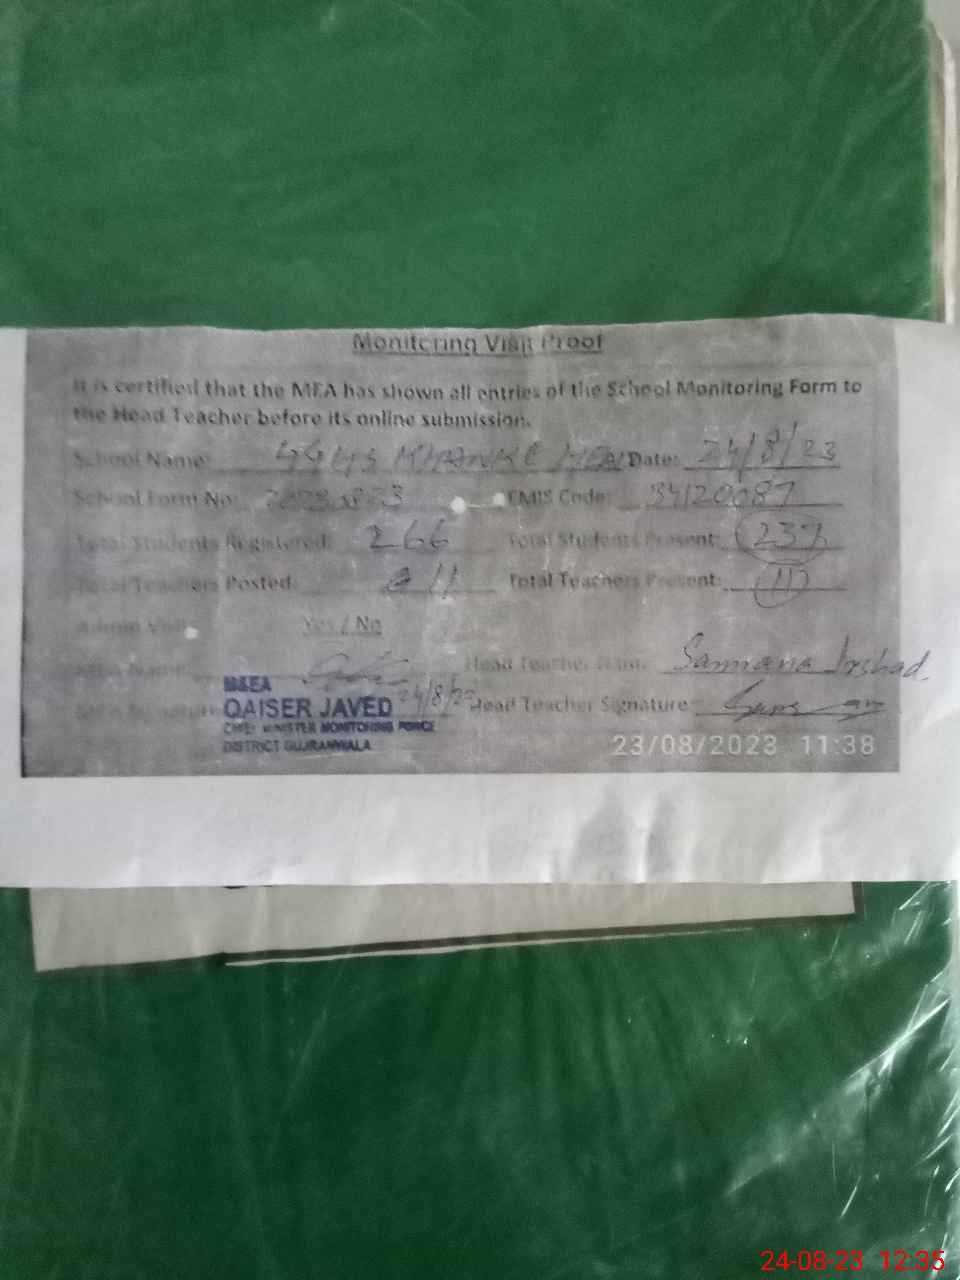 Monitoring Visit Proof
It is certified that the MEA has shown all entries of the School Monitoring Form to
the Head Teacher before its online submission.
School Name: GGHS KHANKE Date: 24/8/23
School Form No: EMIS Code: 34120087
Total Students Registered: 266 Total Students Present: 237
Total Teachers Posted: 11 Total Teachers Present: 11
Admin Visit: Yes / No
MEA Name: Head Teacher Name: Sammana Irshad
MEA Signature 24/8/23 Head Teacher Signature:
M&EA
QAISER JAVED
CHIEF MINISTER MONITORING FORCE
DISTRICT GUJRANWALA
23/08/2023 11:38
24-08-23 12:35